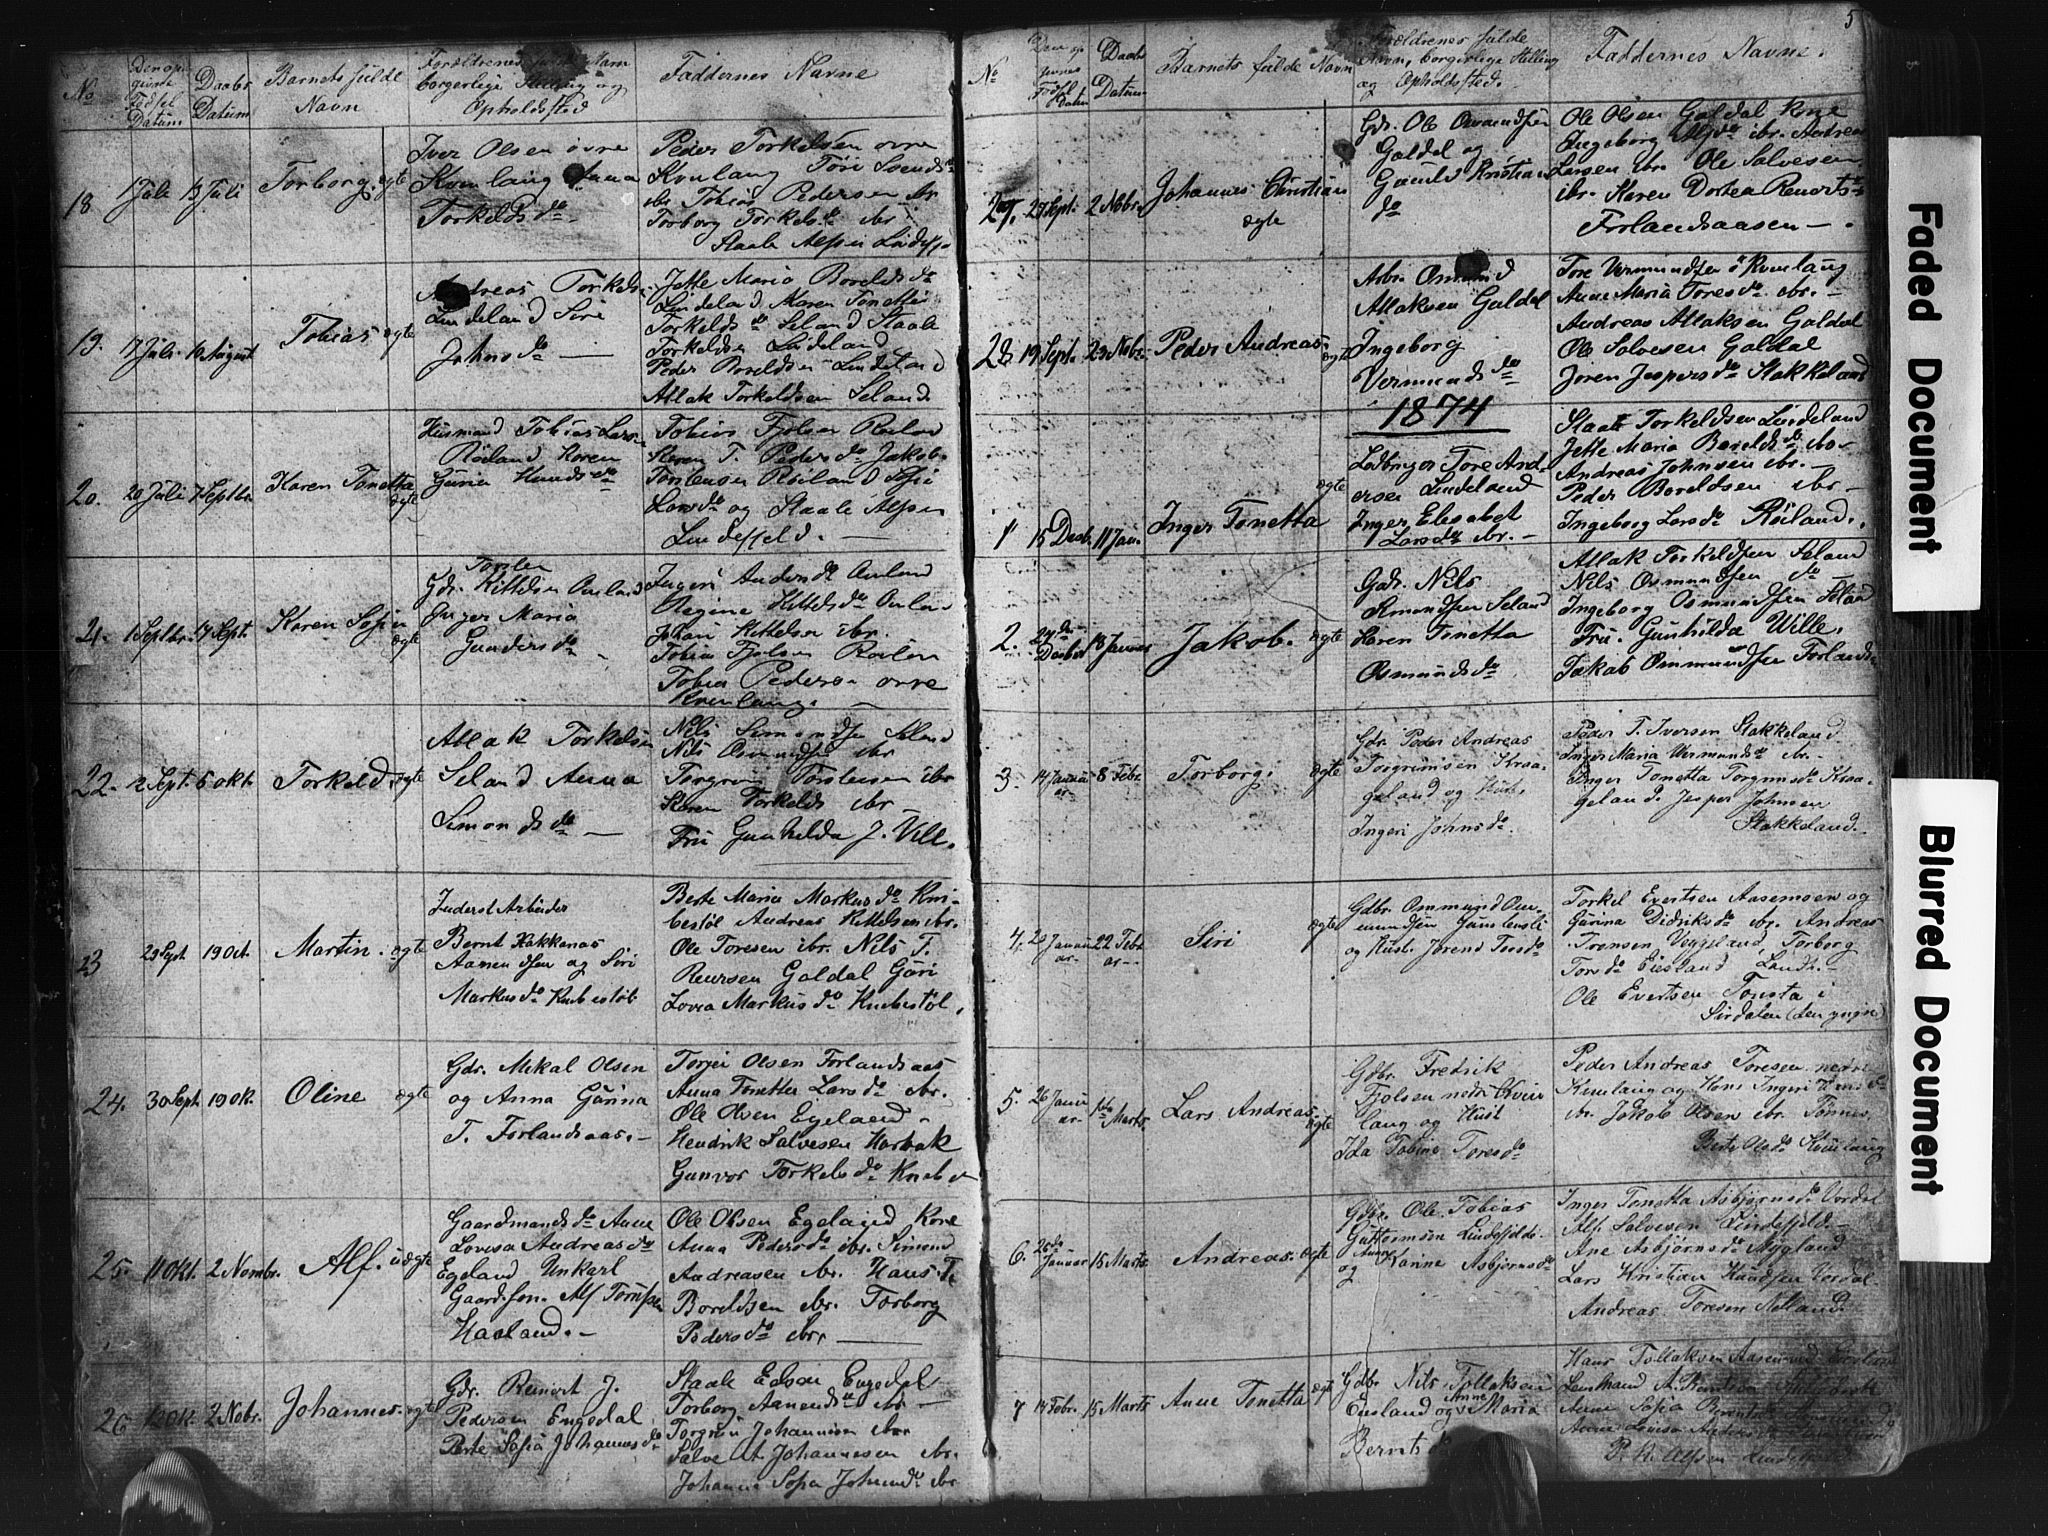 No
Den opgivne Fødsel Datum
Daabs Datum
Barnets fulde Navn
Forældrenes fulde Navn borgerlige Stilling og Opholdssted
Faddernes Navne
18
1 Juli
13 Juli
Torborg. ægte
Iver Olsen øvre
Kvinlaug Anna
Torkelds do
Peder Torkelsen øvre
Kvinlaug Tore Svends do
ibr Tobias Pedersen ibr
Torborg Torkels do ibr
Staale Alfsen Lindefj
19.
7 Juli
10 August
Tobias ægte
Andreas Torkels.
Lindeland Siri
Johns do —
Jette Maria Borelds do
Lindeland Maren Tonette
Torkelds do Seland Staale
Torkeldsen Lindeland
Peder Boreldsen Lindeland
Atlak Torkeldsen Seland
20.
20 Juli
7 Septbr.
Karen Tonetta
ægte
Husmand Tobias Lars
Røiland Karen
Guria Knuds do
Tobias Fjolsen Røiland
Karen T. Peders do Jakob
Torstensen Røiland Sofie
Lars do og Staale Alfsen
Lindefjeld. —
21.
1 Septbr.
14 Sept.
Karen Sofie
ægte
Torsten
Gdr. Kittelsen Omland
Inger Maria
Gunders do
Ingeri Anders do Omland
Regine Kittels do Omland
Johan Kittelsen ibr.
Tobias Fjolsen Røiland
Tobias Pedersen øvre
Kvinlaug. —
22.
12 Sept.
5 Okt.
Torkeld. ægte
Atlak Torkelsen
Seland Anna
Simonds do —
Nils Simondsen Seland
Nils Osmundsen ibr
Torgrim Torstensen ibr
Karen Torkelds ibr —
Fru Gunhilda J. Vill.
23
29 Sept
19 Oct.
Martin. ægte
Inderst Arbeider
Bernt Kakkenas
Aanendsen og Siri
Markus do Knibestøl
Berte Maria Markus do Kni-
bestøl Andreas Kittelsen ibr.
Ole Toresen ibr. Nils T.
Reiersen Galdal Guri
Lovisa Markus do Knibestøl.
24.
30 Sept.
19 Ok.
Oline ægte
Gdr. Mikal Olsen
og Anna Gurina
T. Forlandsaas. —
Torjei Olsen Forlandsaas
Anna Tonetta Lars do ibr.
Ole Olsen Egeland —
Hendrik Salvesen Horbak
Gunvor Torkels do Knibe
25.
11 Okt.
2 Novmbr.
Alf. uægte
Gaardmands do Anne
Lovisa Andreas do
Egeland Unkarl
Gaards.søn. Alf Tønnesen
Haaland. —
Ole Olsen Egeland Kone
Anna Peders do ibr. Simond
Andreasen ibr. Hans T.
Boreldsen ibr. Torborg
Peders do ibr. —
26
12 Ok.
2 Nobr.
Johannes. ægte
Gdr. Reinert J.
Pedersen Engedal
Berte Sofia Johannes do
Staale Edsen Engedal
Torborg Aanends do ibr —
Torgrim Johannesen ibr
Salve A. Johannesen ibr.
Johanne Sofia Johannds do ibr
5
No
Den opgivnes Fødsel Datum
Daabs Datum
Barnets fulde Navn
Forældrenes fulde Navn, borgerlige Stilling og Opholdssted.
Faddernes Navne.
27.
27 Sept.
2 Nobr.
Johannes Christian
ægte
Gdr. Ole Osmundsen
Galdal og
Gunild Kristians
do
Ole Olsen Galdal Kone
Ingeborg Alfs do ibr. Andreas
Larsen ibr. Ole Salvesen
ibr. Karen Dortea Reierts
Forlandsaasen — .
28
19 Sept.
23 Nobr.
Peder Andreas.
ægte
Arbr. Osmund
Atlaksen Galdal
Ingeborg
Vermunds do
Tore Vermundsen ø Kvinlaug
Anne Maria Tores do ibr. —
Andreas Atlaksen Galdal
Ole Salvesen Galdal
Joren Jespers do Stakkeland
1874
1
15 Desb.
11 Jan.
Inger Tonetta ægte
Ledbruger Tore And-
ersen Lindeland
Inger Elesabet
Lars do ibr. —
Staale Torkeldsen Lindeland
Jette Maria Borelds do ibr
Andreas Johnsen ibr. —
Peder Boreldsen ibr —
Ingeborg Lars do Røiland.
2.
29 de Decbr
18 Januar
Jakob. ægte
Gdr. Nils
Simondsen Seland
Karen Tonetta
Osmunds do
Atlak Torkeldsen Seland
Nils Osmundsen do —
Ingeborg Osmundsen Seland
Fru. Gunhilda Wille.
Jakob Ommundsen Forlands
3.
14 Januar
8 Febr.
Torborg. ægte
Gdr. Peder Andreas
Torgrimsen Kraa-
geland og Hust.
Ingeri Johns do.
Peder T. Iversen Stakkeland
Inger Maria Vermunds do ibr. —
Inger Tonetta Torgrims do Kraa-
geland. Jesper Johnsen
Stakkeland. —
4.
2 Januar
22 Febr.
Siri ægte
Gdbr. Ommund Om-
mundsen
og Hust. Jorend Tores do
Torkil Evertsen Aasemoen og
Gurina Didriks do ibr. Andreas
Tronsen Veggeland, Torborg
Tors do Eiesland Lunds.
Ole Evertsen Tonsta i
Sirdalen (den yngre)
5.
26 Januar
1ste Marts.
Lars Andreas.
ægte
Gdbr. Fredrik
Fjolsen nedre Kvin
laug og Hust
Ida Tobine Tores do
Peder Andreas Toresen nedre
Kvinlaug og Hans
ibr. Jakob Olsen ibr. Tønnes
Berte Ols do Kvinlaug
6.
26 de Januar
15 Marts.
Andreas. ægte
Gdbr. Ole Tobias
Guttormsen Lindefjeld.
og Anne Karine Asbjørns do
Inger Tonetta Asbjørns do Vordal
Alf Salvesen Lindefjeld. —
Ane Asbjørns do Mygland
Lars Kristian Knudsen Vordal
Andreas Toresen Neland. —
7
14 Febr.
15 Marts
Anne Tonetta ægte
Gdbr Nils Tollaksen
Eiesland og Anne Maria
Bernts do
Hans Tollaksen Aasemund Eiesland
Anne Sofia Bernts do
P. R. Alfsen
Faded Document
Blurred Document